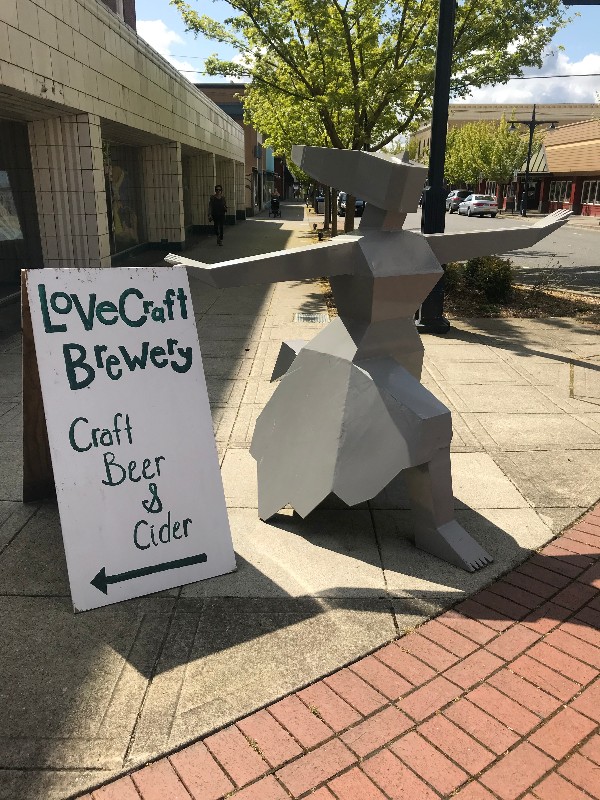 LoveCraft
Brewery
Craft
Beer
&
Cider